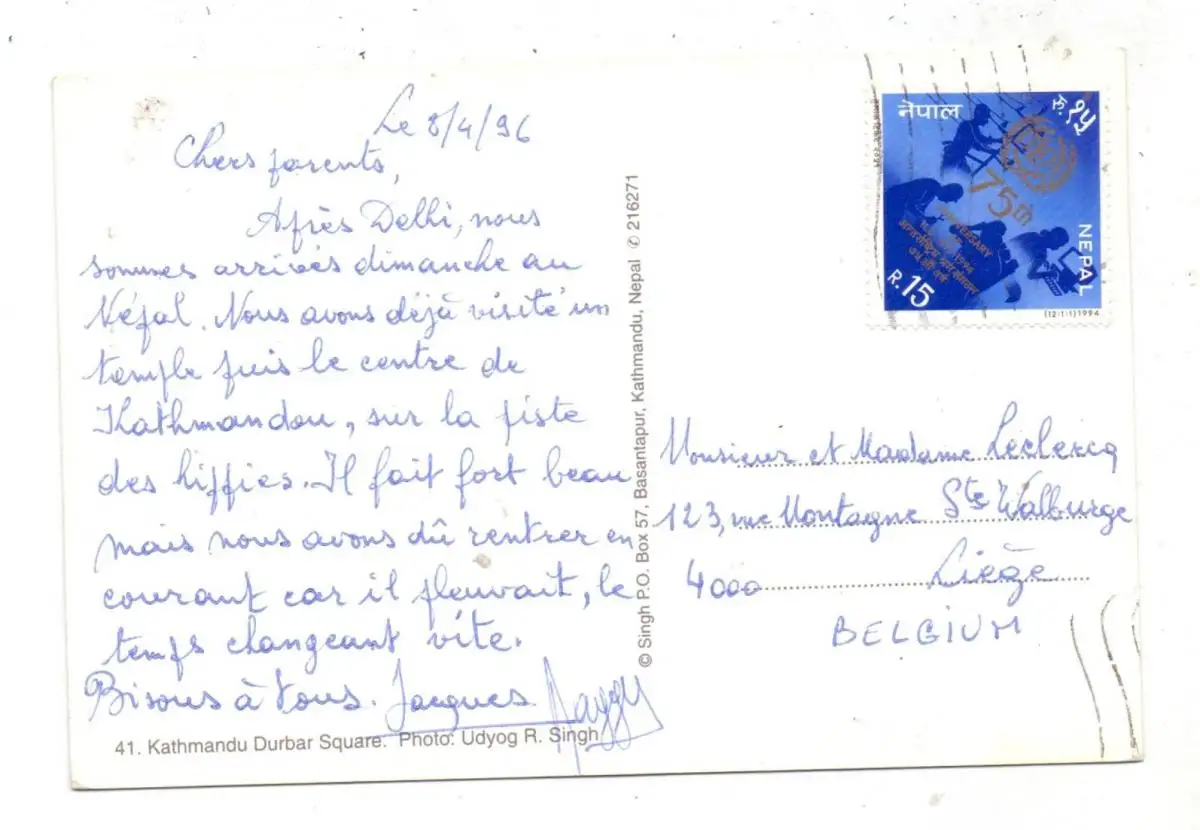 Le 8/4/96
Chers parents,
Après Delhi, nous
sommes arrivés dimanche au
Népal. Nous avons déjà visité un
temple puis le centre de
Kathmandou, sur la piste
des hippies. Il fait fort beau
mais nous avons dû rentrer en
courant car il pleuvait, le
temps changeant vite.
Bisous à tous. Jacques Maggy
41. Kathmandu Durbar Square. Photo: Udyog R. Singh
© Singh P.O. Box 57, Basantapur, Kathmandu, Nepal ✆ 216271
नेपाल
रु. १५
75th
ANNERSARY
1994
NEPAL
R. 15
(12:1:1)1994
Monsieur et Madame Leclercq
123, rue Montagne Ste Walburge
4000 Liège
BELGIUM